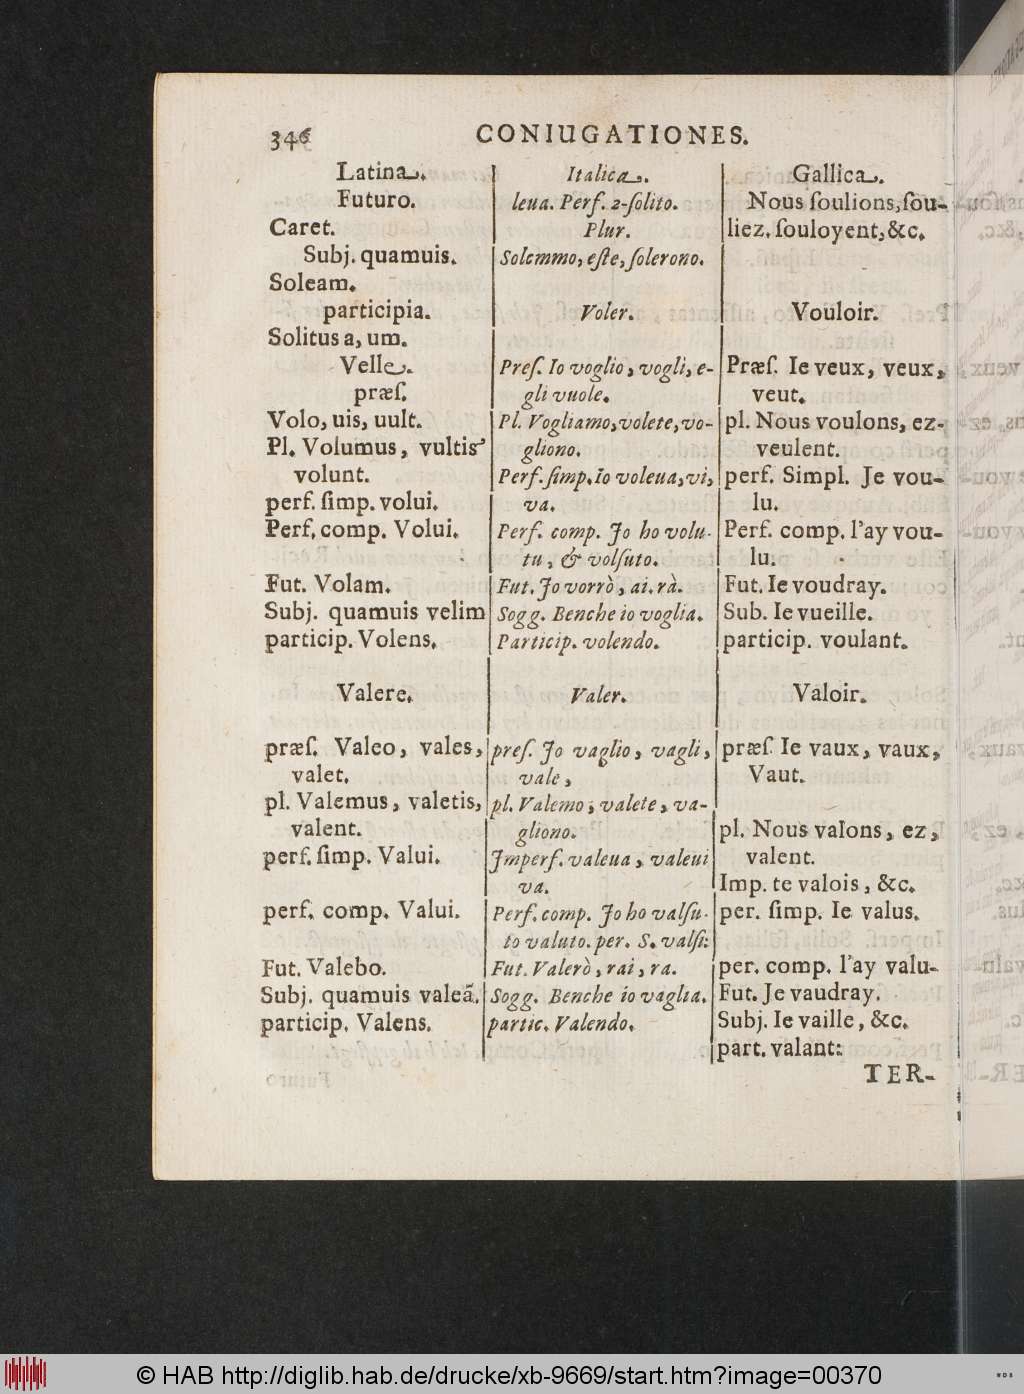 346
CONIUGATIONES.
Latina.
Futuro.
Caret.
Subj. quamuis.
Soleam.
participia.
Solitus a, um.
Velle.
præſ.
Volo, uis, uult.
Pl. Volumus, vultis
volunt.
perf. ſimp. volui.
Perf. comp. Volui.
Fut. Volam.
Subj. quamuis velim
particip. Volens.
Valere.
præſ. Valeo, vales,
valet.
pl. Valemus, valetis,
valent.
perf. ſimp. Valui.
perf. comp. Valui.
Fut. Valebo.
Subj. quamuis valeã.
particip. Valens.
Italica.
leua. Perf. 2-ſolito.
Plur.
Solemmo, eſte, ſolerono.
Voler.
Preſ. Io voglio, vogli, e-
gli vuole.
Pl. Vogliamo, volete, vo-
gliono.
Perf. ſimp. Io voleua, vi,
va.
Perf. comp. Jo ho volu-
tu, & volſuto.
Fut. Jo vorrò, ai. rà.
Sogg. Benche io voglia.
Particip. volendo.
Valer.
preſ. Jo vaglio, vagli,
vale,
pl. Valemo, valete, va-
gliono.
Jmperf. valeua, valeui
va.
Perf. comp. Jo ho valſu-
to valuto. per. S. valſi:
Fut. Valerò, rai, ra.
Sogg. Benche io vaglia.
partic. Valendo.
Gallica.
Nous ſoulions, ſou-
liez. ſouloyent, &c.
Vouloir.
Præſ. Ie veux, veux,
veut.
pl. Nous voulons, ez-
veulent.
perf. Simpl. Je vou-
lu.
Perf. comp. l'ay vou-
lu.
Fut. Ie voudray.
Sub. Ie vueille.
particip. voulant.
Valoir.
præſ. Ie vaux, vaux,
Vaut.
pl. Nous valons, ez,
valent.
Imp. te valois, &c.
per. ſimp. Ie valus.
per. comp. l'ay valu-
Fut. Je vaudray.
Subj. Ie vaille, &c.
part. valant:
TER-
© HAB http://diglib.hab.de/drucke/xb-9669/start.htm?image=00370